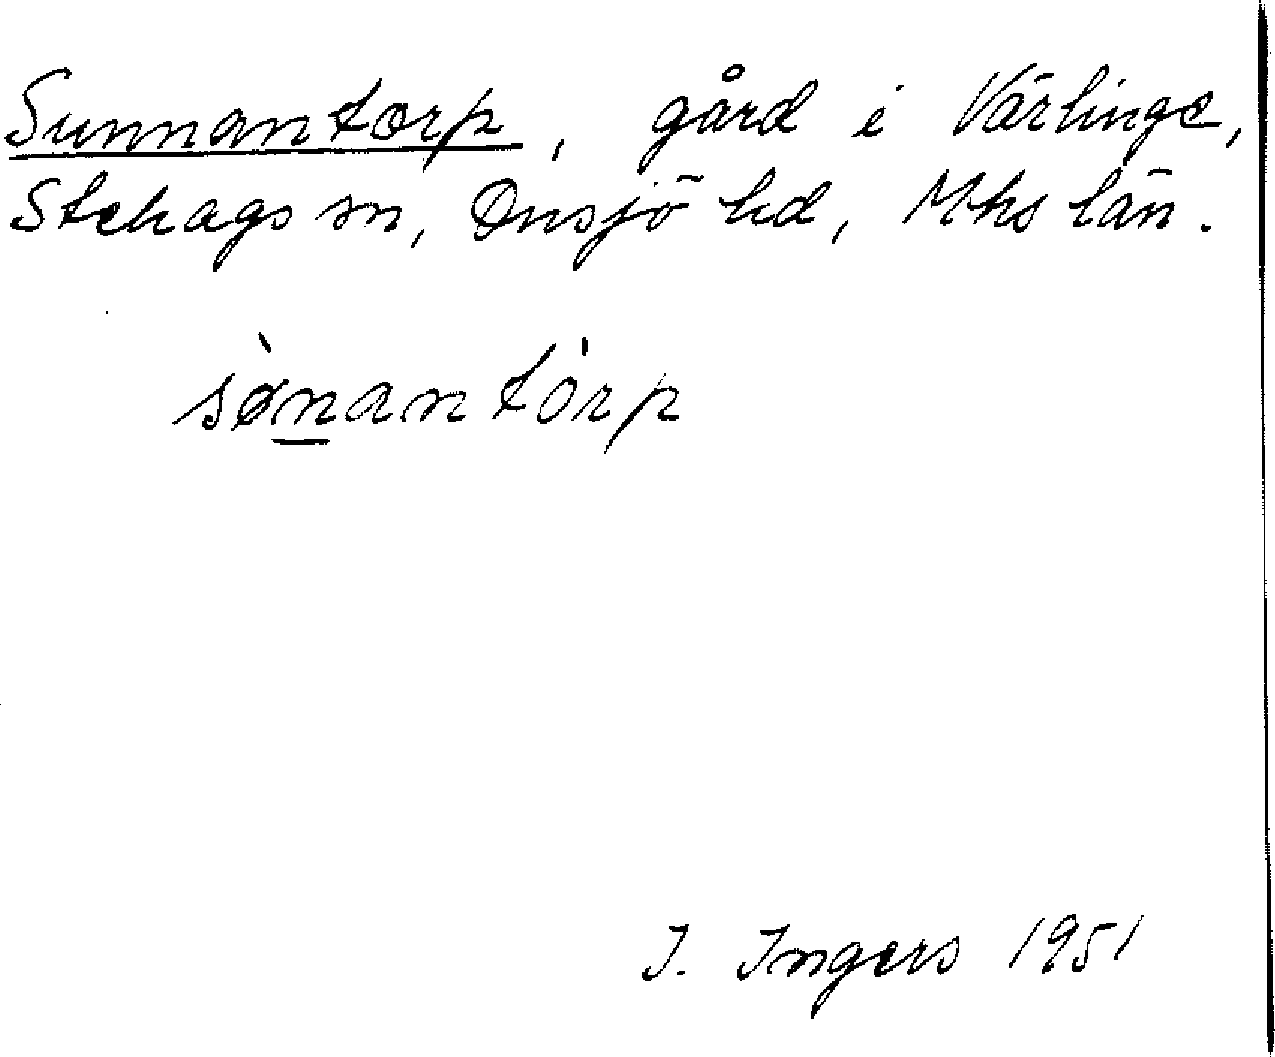 Sunnantorp, gård i Värlinge,
Stehags sn, Onsjö hd, Mhs län.
sønantorp
I. Ingers 1951